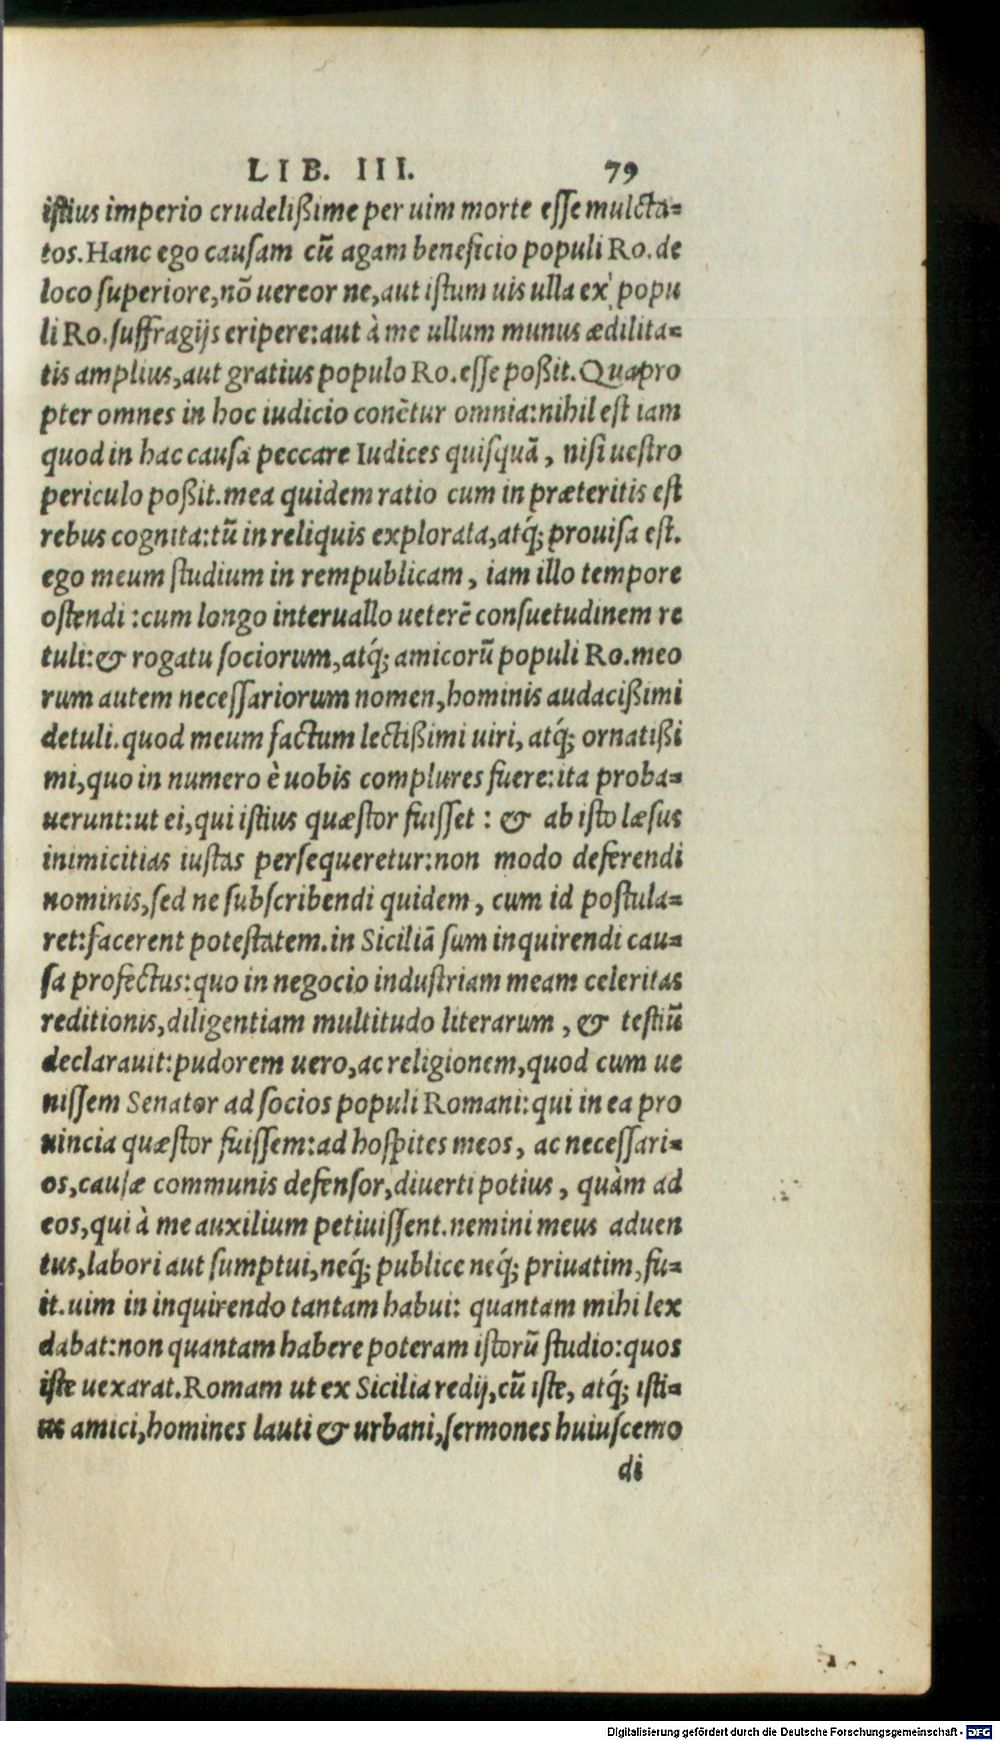 LIB. III. 79
istius imperio crudelißime per uim morte esse mulcta=
tos. Hanc ego causam cũ agam beneficio populi Ro. de
loco superiore, nõ uereor ne, aut istum uis ulla ex popu
li Ro. suffragijs eripere: aut à me ullum munus ædilita=
tis amplius, aut gratius populo Ro. esse poßit. Quapro
pter omnes in hoc iudicio conẽtur omnia: nihil est iam
quod in hac causa peccare Iudices quisquã, nisi uestro
periculo poßit. mea quidem ratio cum in præteritis est
rebus cognita: tũ in reliquis explorata, atq́; prouisa est.
ego meum studium in rempublicam, iam illo tempore
ostendi: cum longo interuallo ueterẽ consuetudinem re
tuli: & rogatu sociorum, atq́; amicorũ populi Ro. meo
rum autem necessariorum nomen, hominis audacißimi
detuli. quod meum factum lectißimi uiri, atq́; ornatißi
mi, quo in numero è uobis complures fuere: ita proba=
uerunt: ut ei, qui istius quæstor fuisset: & ab isto læsus
inimicitias iustas persequeretur: non modo deferendi
nominis, sed ne subscribendi quidem, cum id postula=
ret: facerent potestatem. in Siciliã sum inquirendi cau=
sa profectus: quo in negocio industriam meam celeritas
reditionis, diligentiam multitudo literarum, & testiũ
declarauit: pudorem uero, ac religionem, quod cum ue
nissem Senator ad socios populi Romani: qui in ea pro
uincia quæstor fuissem: ad hospites meos, ac necessari=
os, causæ communis defensor, diuerti potius, quàm ad
eos, qui à me auxilium petiuissent. nemini meus aduen
tus, labori aut sumptui, neq́; publice neq́; priuatim, fu=
it. uim in inquirendo tantam habui: quantam mihi lex
dabat: non quantam habere poteram istorũ studio: quos
iste uexarat. Romam ut ex Sicilia redij, cũ iste, atq́; isti=
us amici, homines lauti & urbani, sermones huiuscemo
di
Digitalisierung gefördert durch die Deutsche Forschungsgemeinschaft - DFG